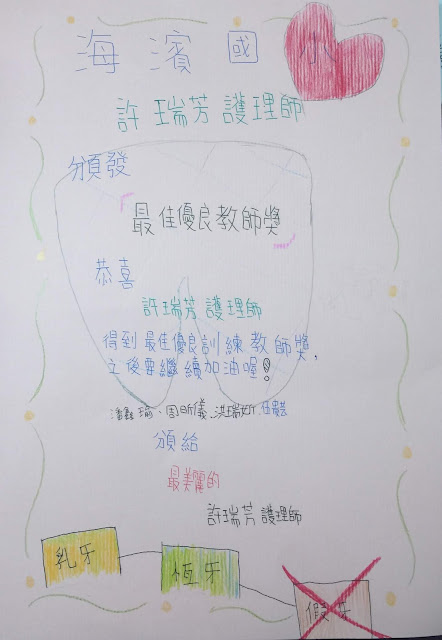 海濱國小
許瑞芳護理師
頒發
最佳優良教師獎
恭喜
許瑞芳護理師
得到最佳優良訓練教師獎,
之後要繼續加油喔!
瑜、周昕儀、洪瑞妡、
頒給
最美麗的
許瑞芳護理師
乳牙
恆牙
假牙